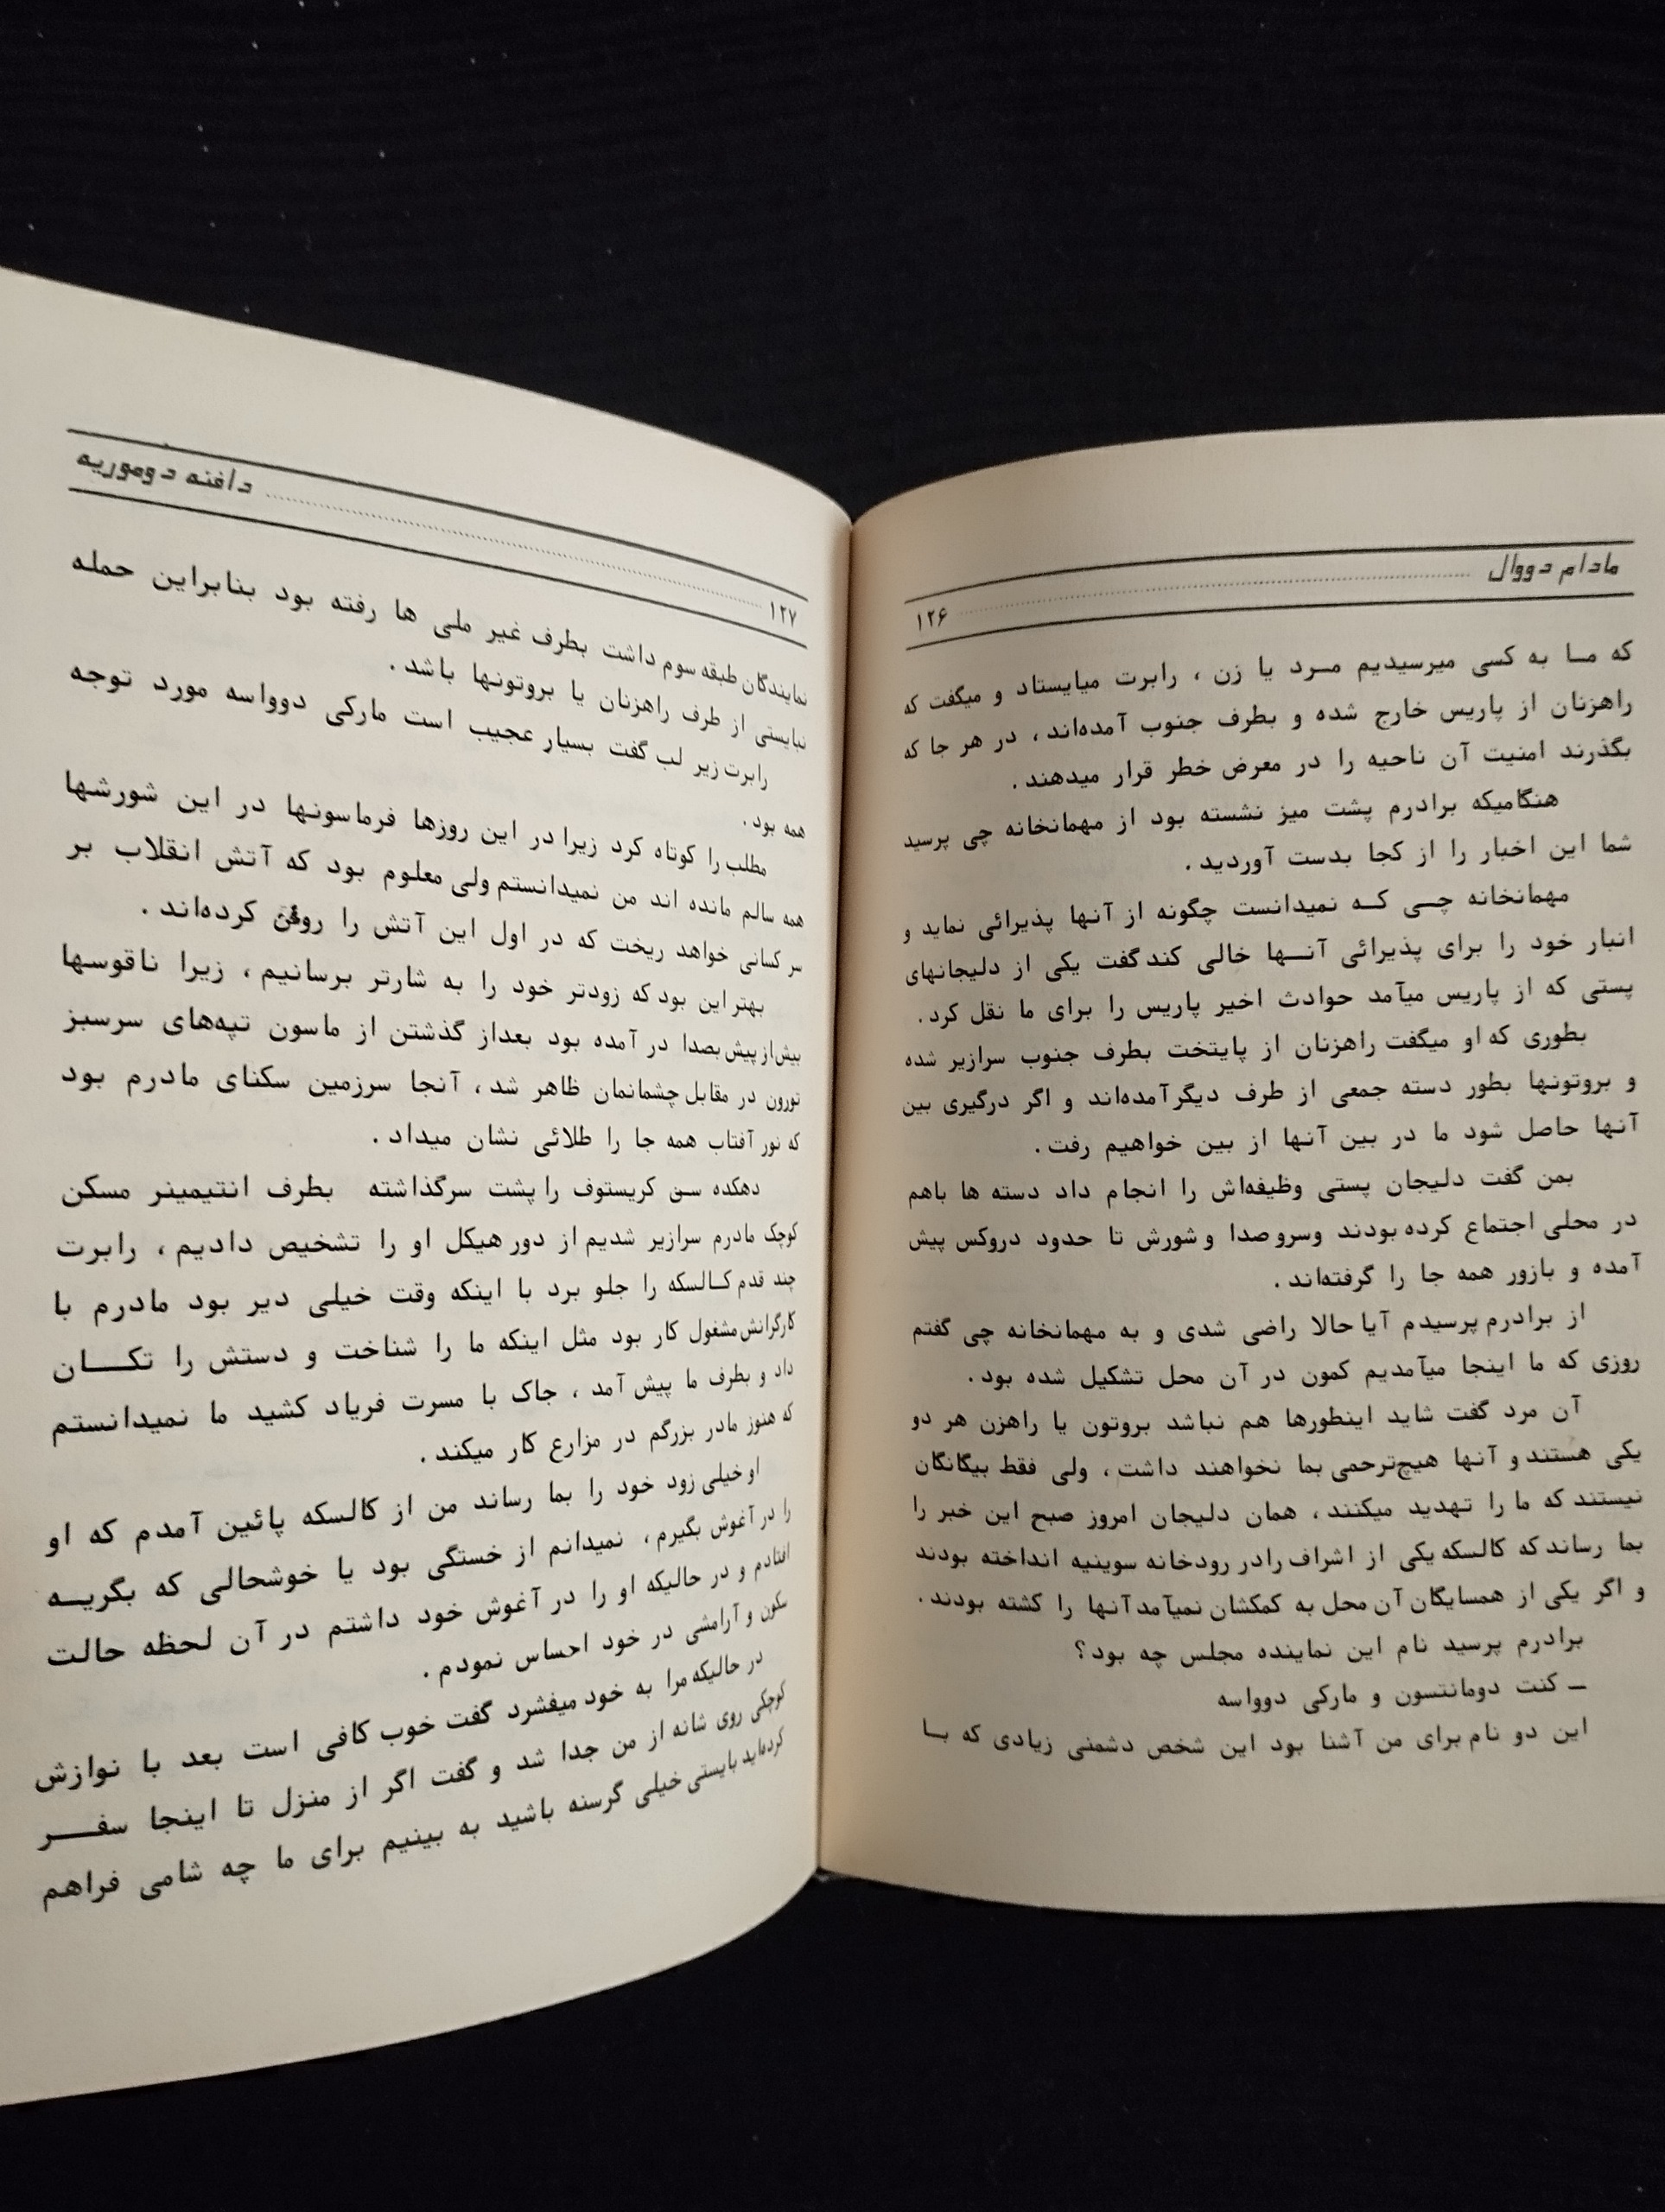 مادام دووال ........ ۱۲۶
که مــا به کسی میرسیدیم مــرد یا زن ، رابرت میایستاد و میگفت که
راهزنان از پاریس خارج شده و بطرف جنوب آمده‌اند ، در هر جا که
بگذرند امنیت آن ناحیه را در معرض خطر قرار میدهند .
هنگامیکه برادرم پشت میز نشسته بود از مهمانخانه چی پرسید
شما این اخبار را از کجا بدست آوردید .
مهمانخانه چــی کــه نمیدانست چگونه از آنها پذیرائی نماید و
انبار خود را برای پذیرائی آنــها خالی کند گفت یکی از دلیجانهای
پستی که از پاریس میآمد حوادث اخیر پاریس را برای ما نقل کرد .
بطوری که او میگفت راهزنان از پایتخت بطرف جنوب سرازیر شده
و بروتونها بطور دسته جمعی از طرف دیگر آمده‌اند و اگر درگیری بین
آنها حاصل شود ما در بین آنها از بین خواهیم رفت .
بمن گفت دلیجان پستی وظیفه‌اش را انجام داد دسته ها باهم
در محلی اجتماع کرده بودند وسرو صدا و شورش تا حدود دروکس پیش
آمده و بازور همه جا را گرفته‌اند .
از برادرم پرسیدم آیا حالا راضی شدی و به مهمانخانه چی گفتم
روزی که ما اینجا میآمدیم کمون در آن محل تشکیل شده بود .
آن مرد گفت شاید اینطورها هم نباشد بروتون یا راهزن هر دو
یکی هستند و آنها هیچ‌ترحمی بما نخواهند داشت ، ولی فقط بیگانگان
نیستند که ما را تهدید میکنند ، همان دلیجان امروز صبح این خبر را
بما رساند که کالسکه یکی از اشراف رادر رودخانه سوینیه انداخته بودند
و اگر یکی از همسایگان آن محل به کمکشان نمیآمد آنها را کشته بودند .
برادرم پرسید نام این نماینده مجلس چه بود ؟
ــ کنت دومانتسون و مارکی دوواسه
این دو نام برای من آشنا بود این شخص دشمنی زیادی که بــا
۱۲۷ ........ دافنه دوموریه
نمایندگان طبقه سوم داشت بطرف غیر ملی ها رفته بود بنابراین حمله
نبایستی از طرف راهزنان یا بروتونها باشد .
رابرت زیر لب گفت بسیار عجیب است مارکی دوواسه مورد توجه
همه بود .
مطلب را کوتاه کرد زیرا در این روزها فرماسونها در این شورشها
همه سالم مانده اند من نمیدانستم ولی معلوم بود که آتش انقلاب بر
سر کسانی خواهد ریخت که در اول این آتش را روشن کرده‌اند .
بهتر این بود که زودتر خود را به شارتر برسانیم ، زیرا ناقوسها
بیش از پیش بصدا در آمده بود بعداز گذشتن از ماسون تپه‌های سرسبز
تورون در مقابل چشمانمان ظاهر شد ، آنجا سرزمین سکنای مادرم بود
که نور آفتاب همه جا را طلائی نشان میداد .
دهکده سن کریستوف را پشت سرگذاشته بطرف انتیمینر مسکن
کوچک مادرم سرازیر شدیم از دور هیکل او را تشخیص دادیم ، رابرت
چند قدم کــالسکه را جلو برد با اینکه وقت خیلی دیر بود مادرم با
کارگرانش مشغول کار بود مثل اینکه ما را شناخت و دستش را تکــــان
داد و بطرف ما پیش آمد ، جاک با مسرت فریاد کشید ما نمیدانستم
که هنوز مادر بزرگم در مزارع کار میکند .
او خیلی زود خود را بما رساند من از کالسکه پائین آمدم که او
را در آغوش بگیرم ، نمیدانم از خستگی بود یا خوشحالی که بگریــه
افتادم و در حالیکه او را در آغوش خود داشتم در آن لحظه حالت
سکون و آرامشی در خود احساس نمودم .
در حالیکه مرا به خود میفشرد گفت خوب کافی است بعد با نوازش
کوچکی روی شانه از من جدا شد و گفت اگر از منزل تا اینجا سفــــر
کرده‌اید بایستی خیلی گرسنه باشید به بینیم برای ما چه شامی فراهم